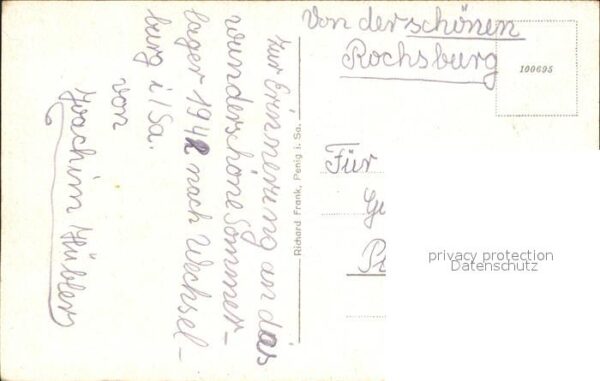 Von der schönen
Rochsburg
100695
Zur Erinnerung an das
wunderschöne Sommer-
lager 1942 nach Wechsel-
burg i/Sa.
von
Joachim Hübler
Richard Frank, Penig i. Sa.
Für
privacy protection
Datenschutz